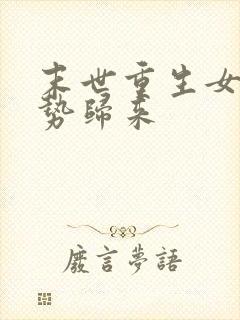 末世重生女
勢歸來
廢言夢語